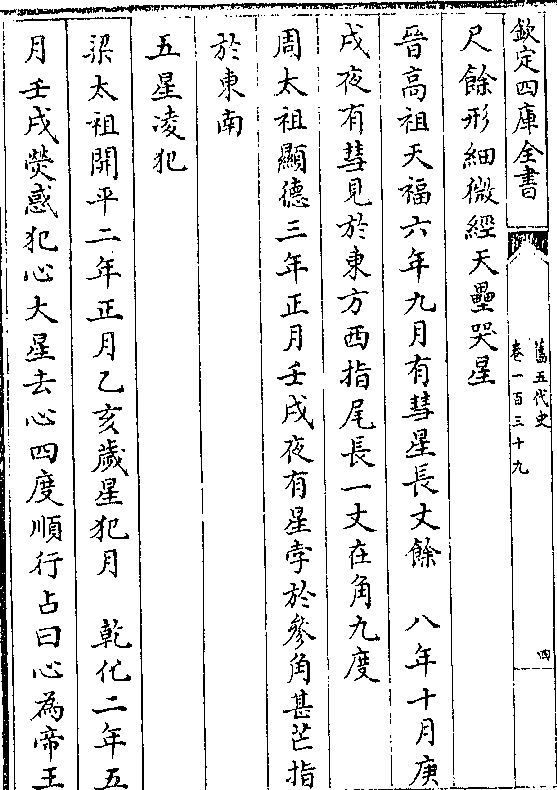 欽定四庫全書
舊五代史
卷一百三十九
四
尺餘形細微經天壘哭星
晉高祖天福六年九月有彗星長丈餘　八年十月庚
戌夜有彗見於東方西指尾長一丈在角九度
周太祖顯德三年正月壬戌夜有星孛於參角甚芒指
於東南
五星凌犯
梁太祖開平二年正月乙亥歲星犯月　乾化二年五
月壬戌熒惑犯心大星去心四度順行占曰心為帝王